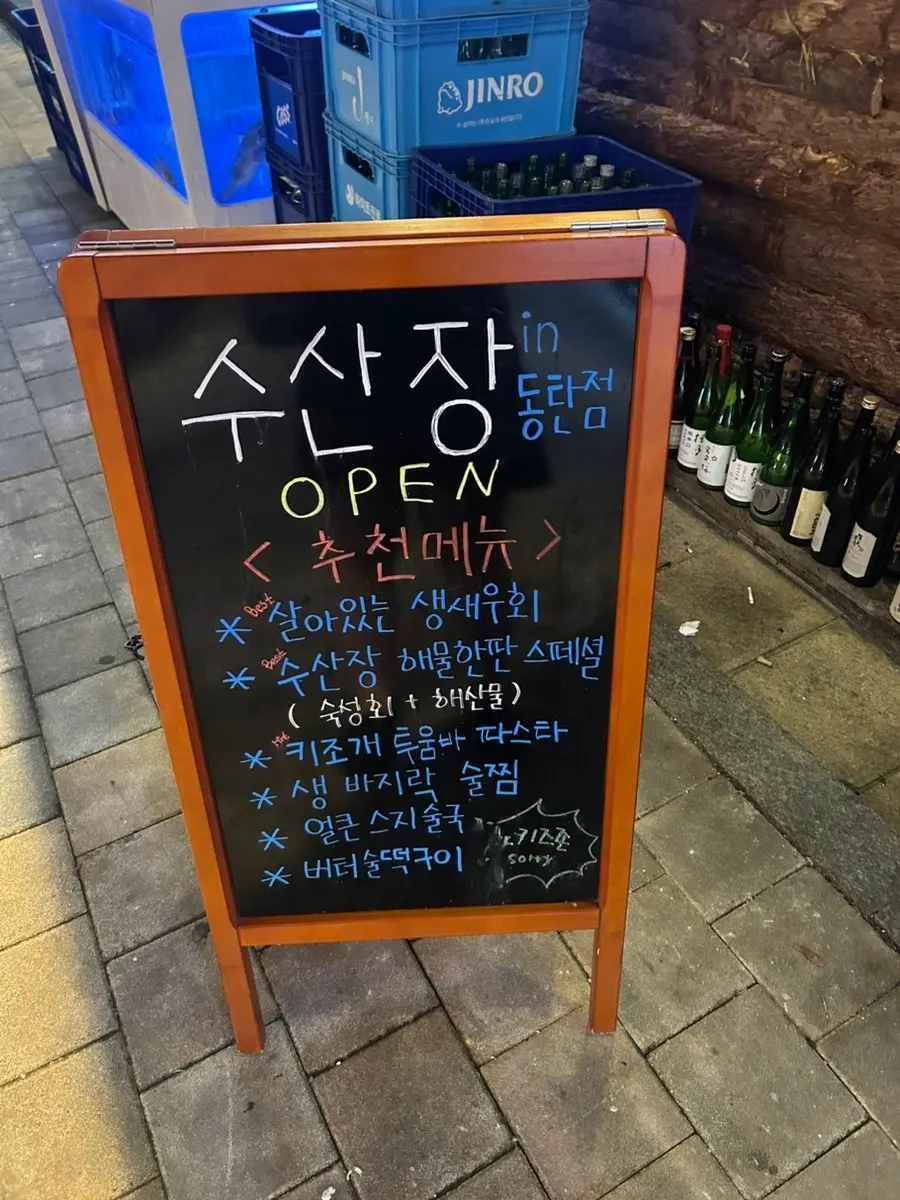 CASS
JINRO
하이트진로
수산장 in
동탄점
OPEN
< 추천메뉴 >
* Best 살아있는 생새우회
* Best 수산장 해물한판 스페셜
( 숙성회 + 해산물 )
* Hit 키조개 투움바 파스타
* 생 바지락 술찜
* 얼큰 스지술국
* 버터술떡구이
노키즈존
sorry